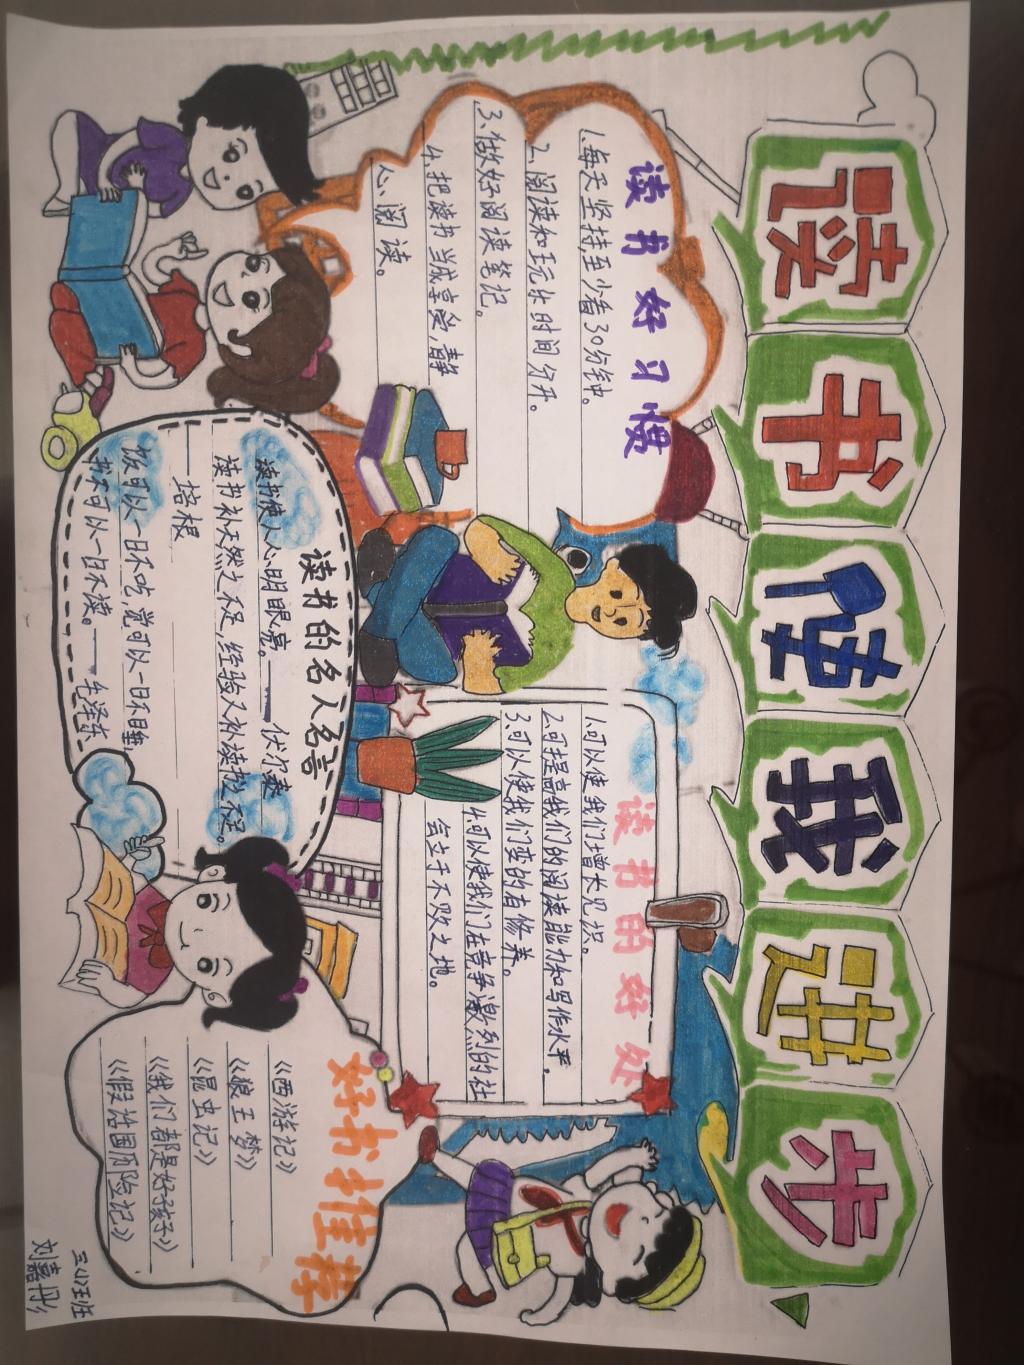 读书使我进步
读书好习惯
1.每天坚持,至少看30分钟。
2、阅读和玩乐时间分开。
3、做好阅读笔记。
4、把读书当成享受,静
人、阅读。
读书的名人名言
读书使人心明眼亮。——伏尔泰
读书补天然之不足,经验又补读书之不足。
——培根
饭可以一日不吃,觉可以一日不睡,
书不可以一日不读。——毛泽东
读书的好处
1.可以使我们增长见识。
2.可提高我们的阅读能力和写作水平。
3.可以使我们变的有修养。
4.可以使我们在竞争激烈的社
会立于不败之地。
好书推荐
《西游记》
《狼王梦》
《昆虫记》
《我们都是好孩子》
《假话国历险记》
刘嘉丹